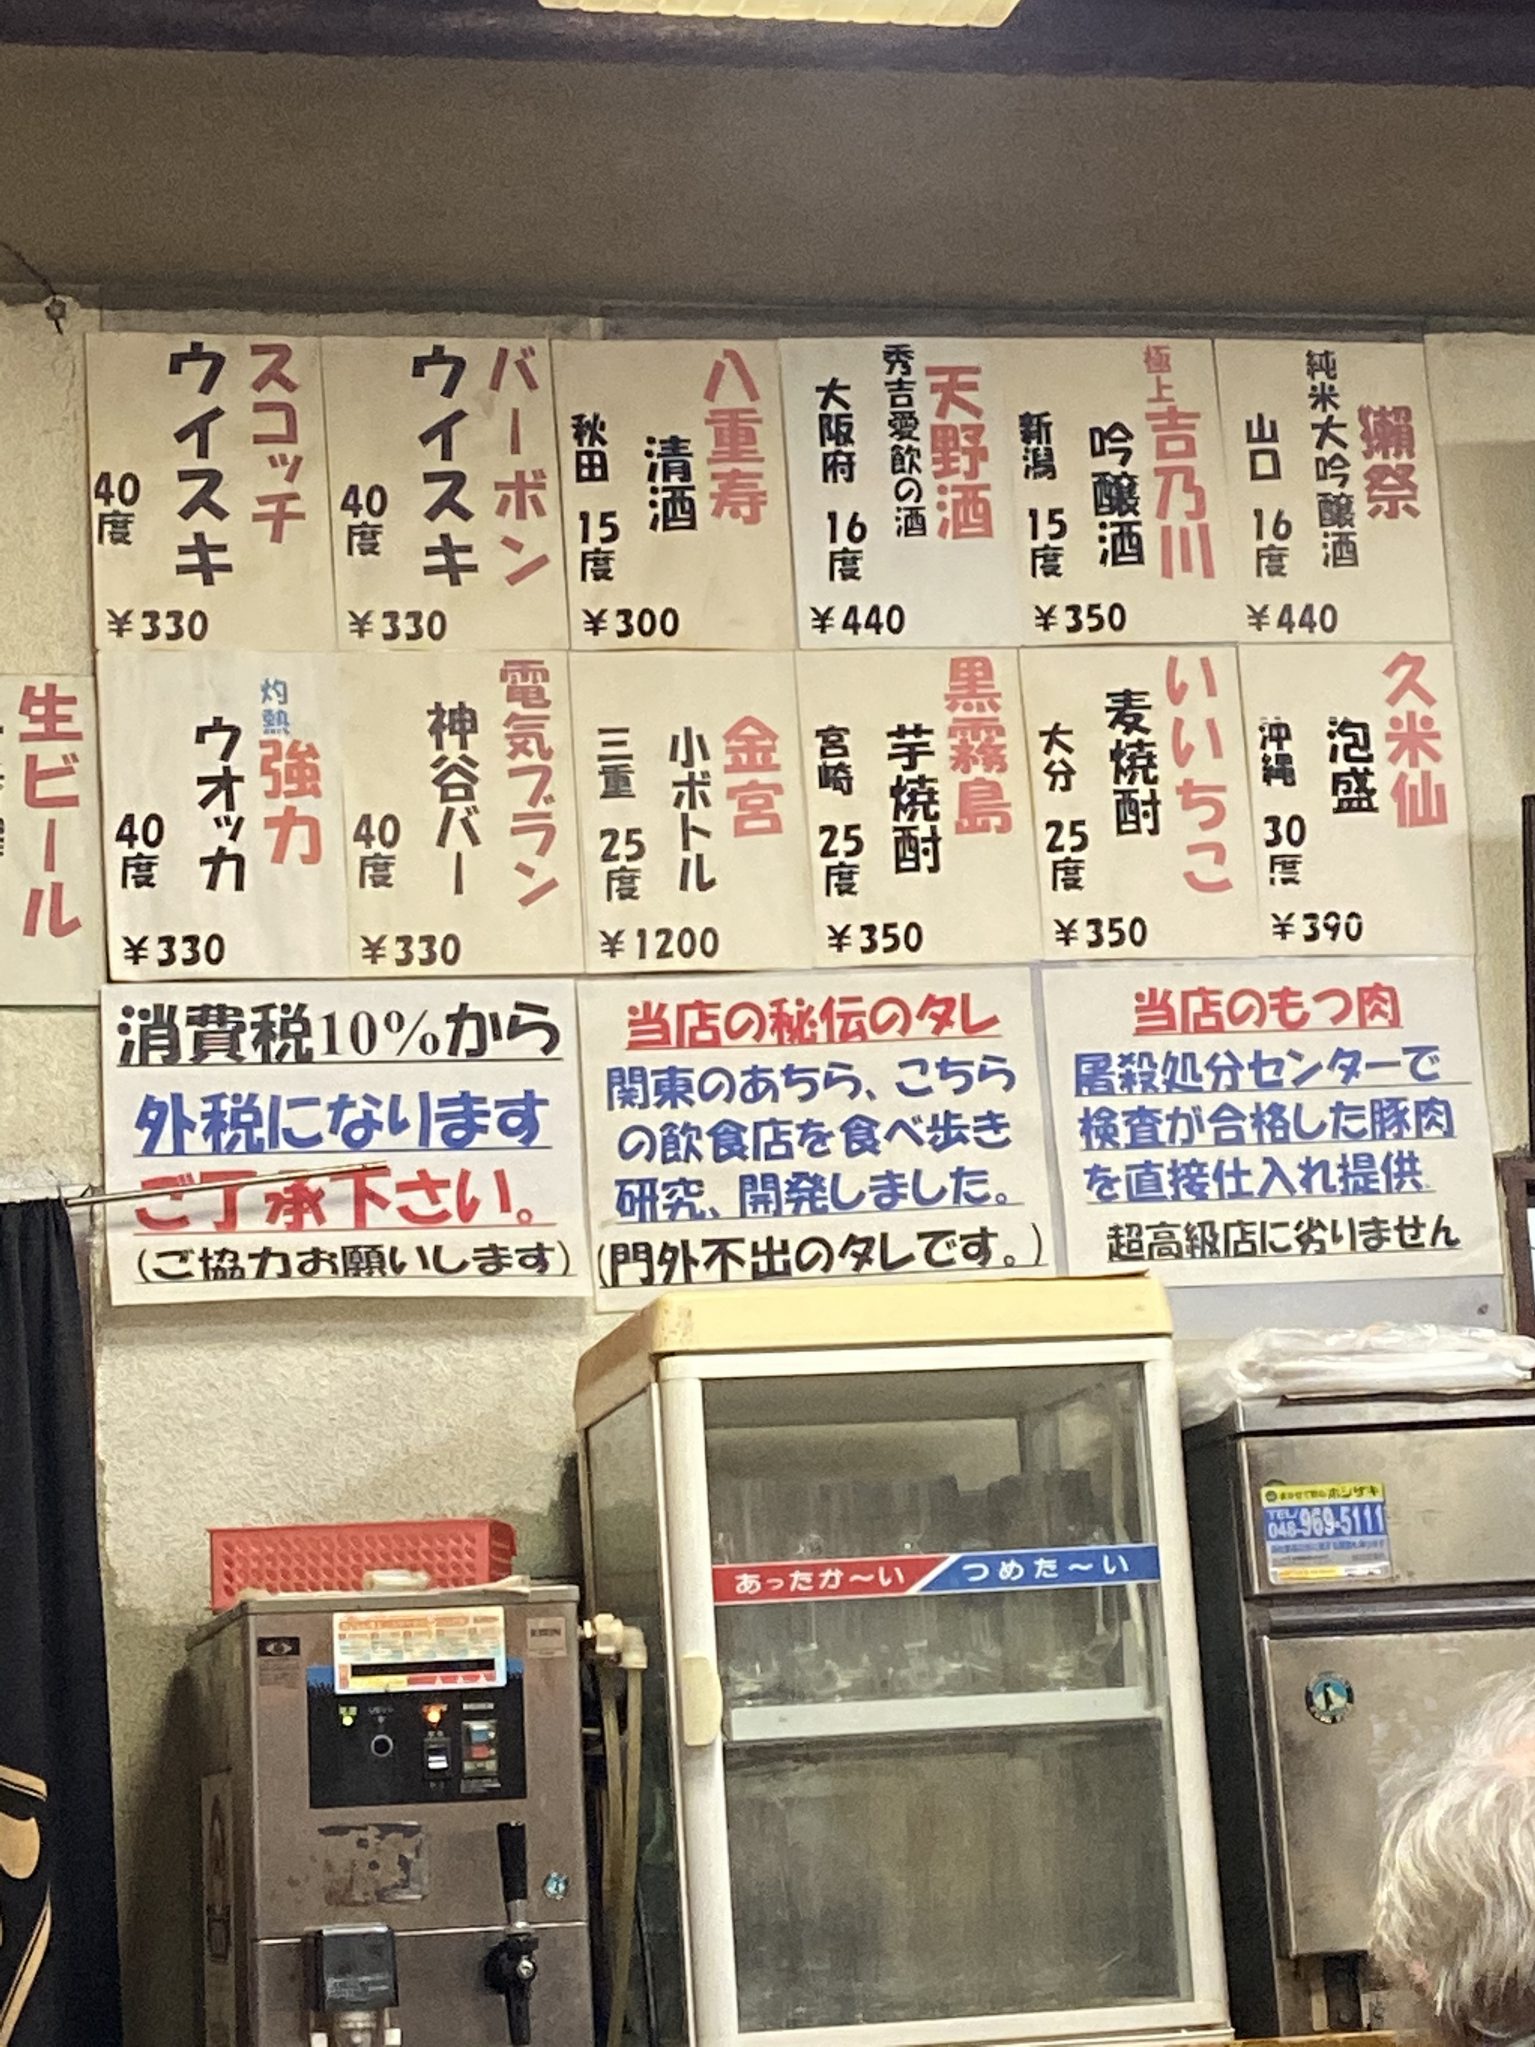 獺祭
純米大吟醸酒
山口 16度
¥440
極上吉乃川
吟醸酒
新潟 15度
¥350
天野酒
秀吉愛飲の酒
大阪府 16度
¥440
八重寿
清酒
秋田 15度
¥300
バーボン
ウイスキ
40度
¥330
スコッチ
ウイスキ
40度
¥330
久米仙
泡盛
沖縄 30度
¥390
いいちこ
麦焼酎
大分 25度
¥350
黒霧島
芋焼酎
宮崎 25度
¥350
金宮
小ボトル
三重 25度
¥1200
電気ブラン
神谷バー
40度
¥330
灼熱強力
ウオッカ
40度
¥330
生ビール
消費税10%から
外税になります
ご了承下さい。
(ご協力お願いします)
当店の秘伝のタレ
関東のあちら、こちら
の飲食店を食べ歩き
研究、開発しました。
(門外不出のタレです。)
当店のもつ肉
屠殺処分センターで
検査が合格した豚肉
を直接仕入れ提供
超高級店に劣りません
あったか〜い
つめた〜い
ホシザキ
TEL
048-969-5111
KIRIN